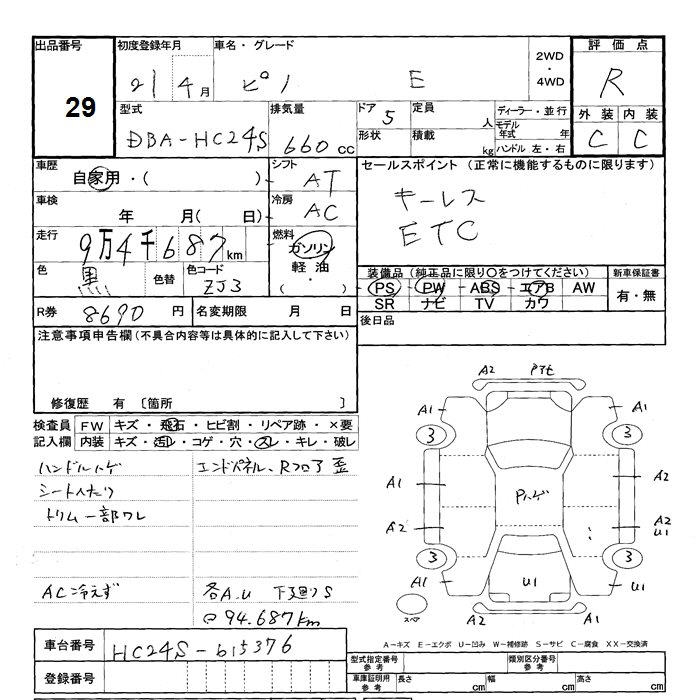 出品番号 初度登録年月 車名・グレード 2WD・4WD 評価点
29 21 4月 ピノ E R
型式 排気量 ドア 5 定員 人 ディーラー・並行 外装 内装
DBA-HC24S 660cc 形状 積載 kg モデル年式 年 ハンドル 左・右 C C
車歴 自家用・( ) シフト AT セールスポイント (正常に機能するものに限ります)
車検 年 月( 日) 冷房 AC キーレス
走行 9万4千687km 燃料 ガソリン 軽油 ・( ) ETC
色 黒 色替 色コード ZJ3 装備品(純正品に限り○をつけてください) 新車保証書
PS PW ABS エアB AW 有・無
SR ナビ TV カワ
R券 8690円 名変期限 月 日 後日品
注意事項申告欄(不具合内容等は具体的に記入して下さい)
修復歴 有 〔箇所 〕
検査員 FW キズ・飛石・ヒビ割・リペア跡・×要
記入欄 内装 キズ・汚レ・コゲ・穴・スレ・キレ・破レ
ハンドルハゲ エンドパネル、Rフロア 歪
シートへたり
トリム一部ワレ
AC冷えず 各A.U 下廻りS
@94.687km
A2
A1 A1
3 3
A1 A2
Pハゲ
A2 A2
U1
3 3
A1 U1 U1
スペア A2
A-キズ E-エクボ U-凹み W-補修跡 S-サビ C-腐食 XX-交換済
車台番号 HC24S-615376
型式指定番号 参考 類別区分番号 参考
登録番号 車庫証明用 参考 長さ cm 幅 cm 高さ cm